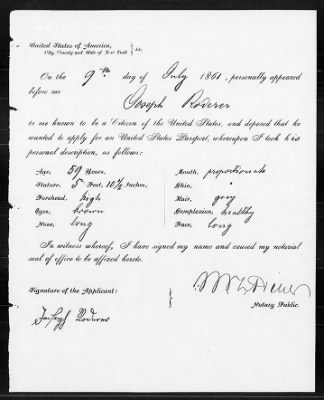 United States of America,
City, County and State of New York } ss.
On the 9th day of July 1861, personally appeared
before me
Joseph Roderer
to me known to be a Citizen of the United States, and deposed that he
wanted to apply for an United States Passport, whereupon I took his
personal description, as follows:
Age, 59 Years, Mouth, proportionate
Stature, 5 Feet, 10 1/2 Inches, Chin, "
Forehead, high Hair, grey
Eyes, brown Complexion, healthy
Nose, long Face, long
In witness whereof, I have signed my name and caused my notarial
seal of office to be affixed hereto.
Signature of the Applicant:
Notary Public.
Joseph Roderer